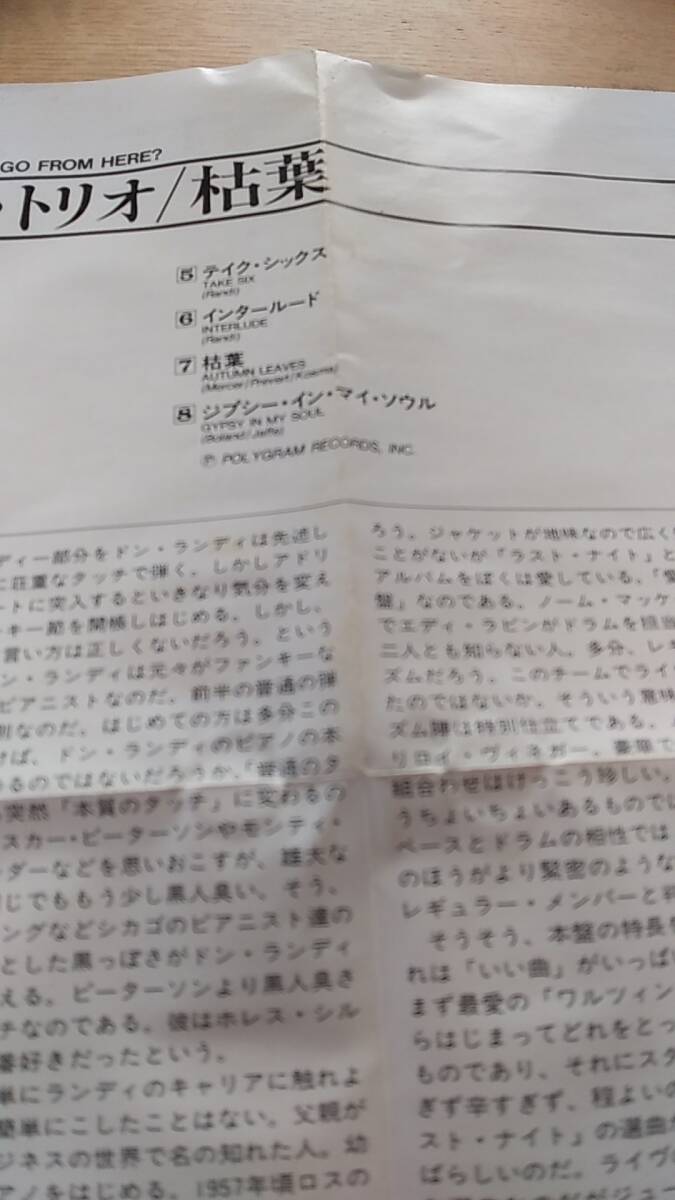 GO FROM HERE?
・トリオ/枯葉
5 テイク・シックス
TAKE SIX
(Randi)
6 インタールード
INTERLUDE
(Randi)
7 枯葉
AUTUMN LEAVES
(Mercer/Prevert/Kosma)
8 ジプシー・イン・マイ・ソウル
GYPSY IN MY SOUL
(Boland/Jaffe)
Ⓟ POLYGRAM RECORDS, INC.
ディー部分をドン・ランディは先述し
に荘重なタッチで弾く。しかしアドリ
ートに突入するといきなり気分を変え
ンキー節を開帳しはじめる。しかし、
言い方は正しくないだろう。という
ン・ランディは元々がファンキーな
ピアニストなのだ。前半の普通の弾
別なのだ。はじめての方は多分この
けば、ドン・ランディのピアノの本
るのではないだろうか。「普通のタ
突然「本質のタッチ」に変わるの
スカー・ピーターソンやモンティ・
ダーなどを思いおこすが、雄大な
じでももう少し黒人臭い。そう、
ングなどシカゴのピアニスト達の
とした黒っぽさがドン・ランディ
える。ピーターソンより黒人臭さ
チなのである。彼はホレス・シル
番好きだったという。
単にランディのキャリアに触れよ
簡単にこしたことはない。父親が
ジネスの世界で名の知れた人。幼
アノをはじめる。1957年頃ロスの
ろう。ジャケットが地味なので広く
ことがないが「ラスト・ナイト」と
アルバムをぼくは愛している。「愛
盤」なのである。ノーム・マッケ
でエディ・ラビンがドラムを担当
二人とも知らない人。多分、レギ
ズムだろう。このチームでライ
たのではないか。そういう意味
ズム陣は特別仕立てである。
リロイ・ヴィネガー、豪華で
組合わせはけっこう珍しい。
うちょいちょいあるものでは
ベースとドラムの相性では
のほうがより緊密のような
レギュラー・メンバーと
そうそう、本盤の特長
れは「いい曲」がいっぱい
まず最愛の「ワルツィン
らはじまってどれをとっ
ものであり、それにスタ
ぎず辛すぎず、程よいの
スト・ナイト」の選曲
ばらしいのだ。ライヴの